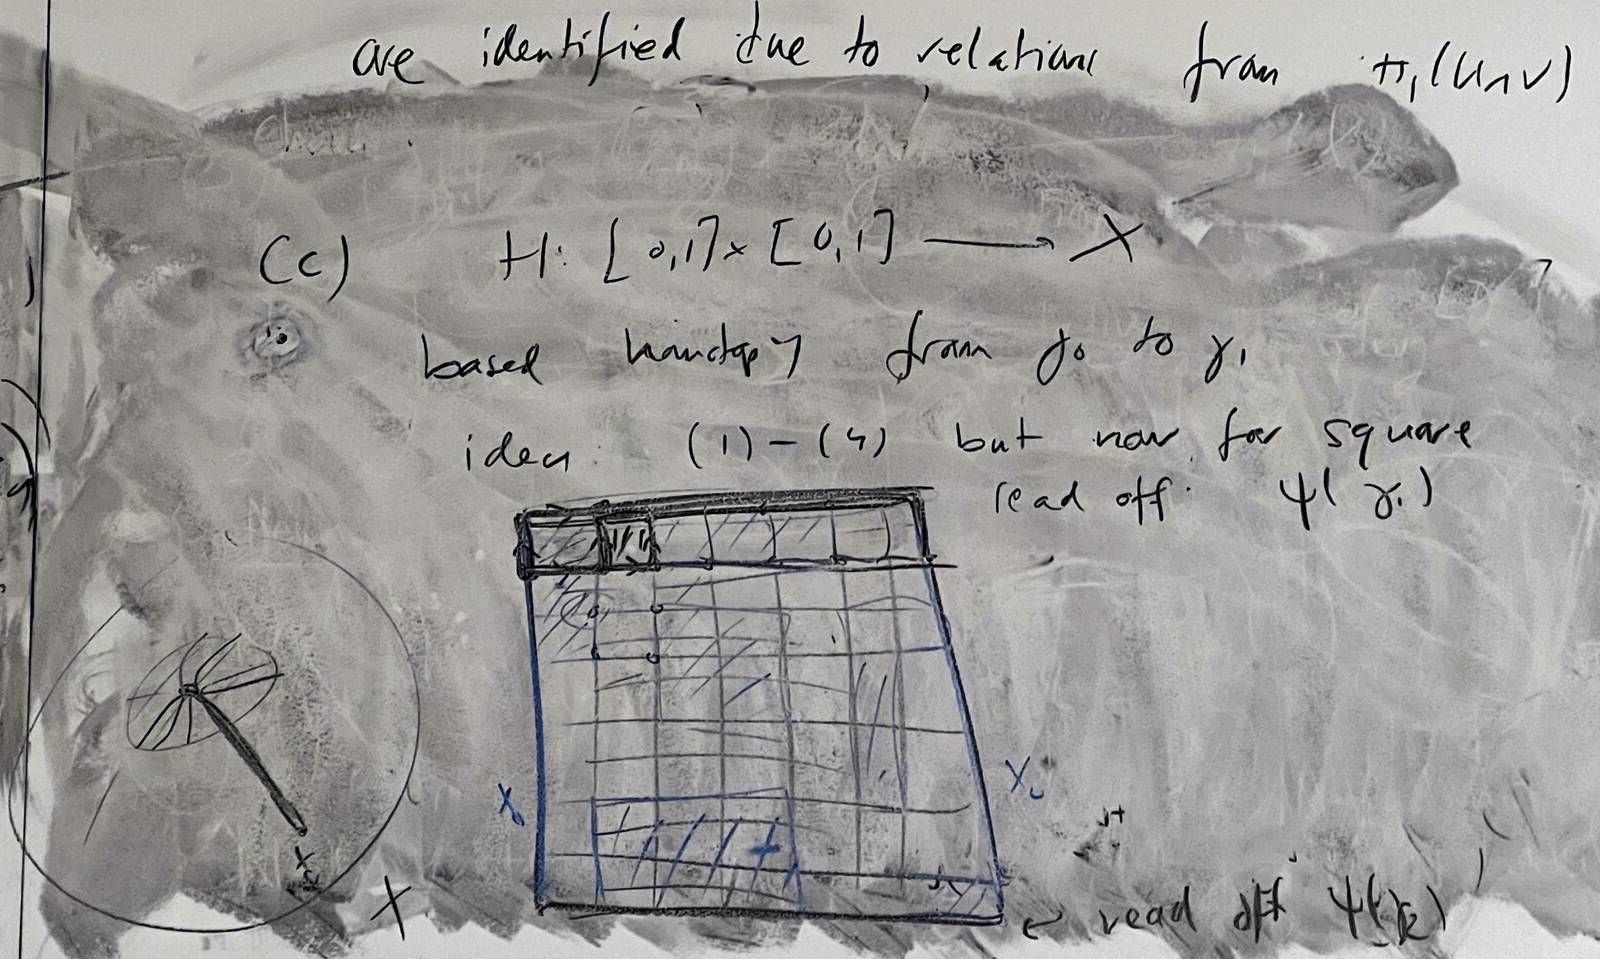 are identified due to relations from π₁(U∩V)
(c) H: [0,1]×[0,1] ⟶ X
based homotopy from γ₀ to γ₁
idea: (1)-(4) but now for square
read off: ψ(γ₁)
x₀ x₀
x₀
X
← read off